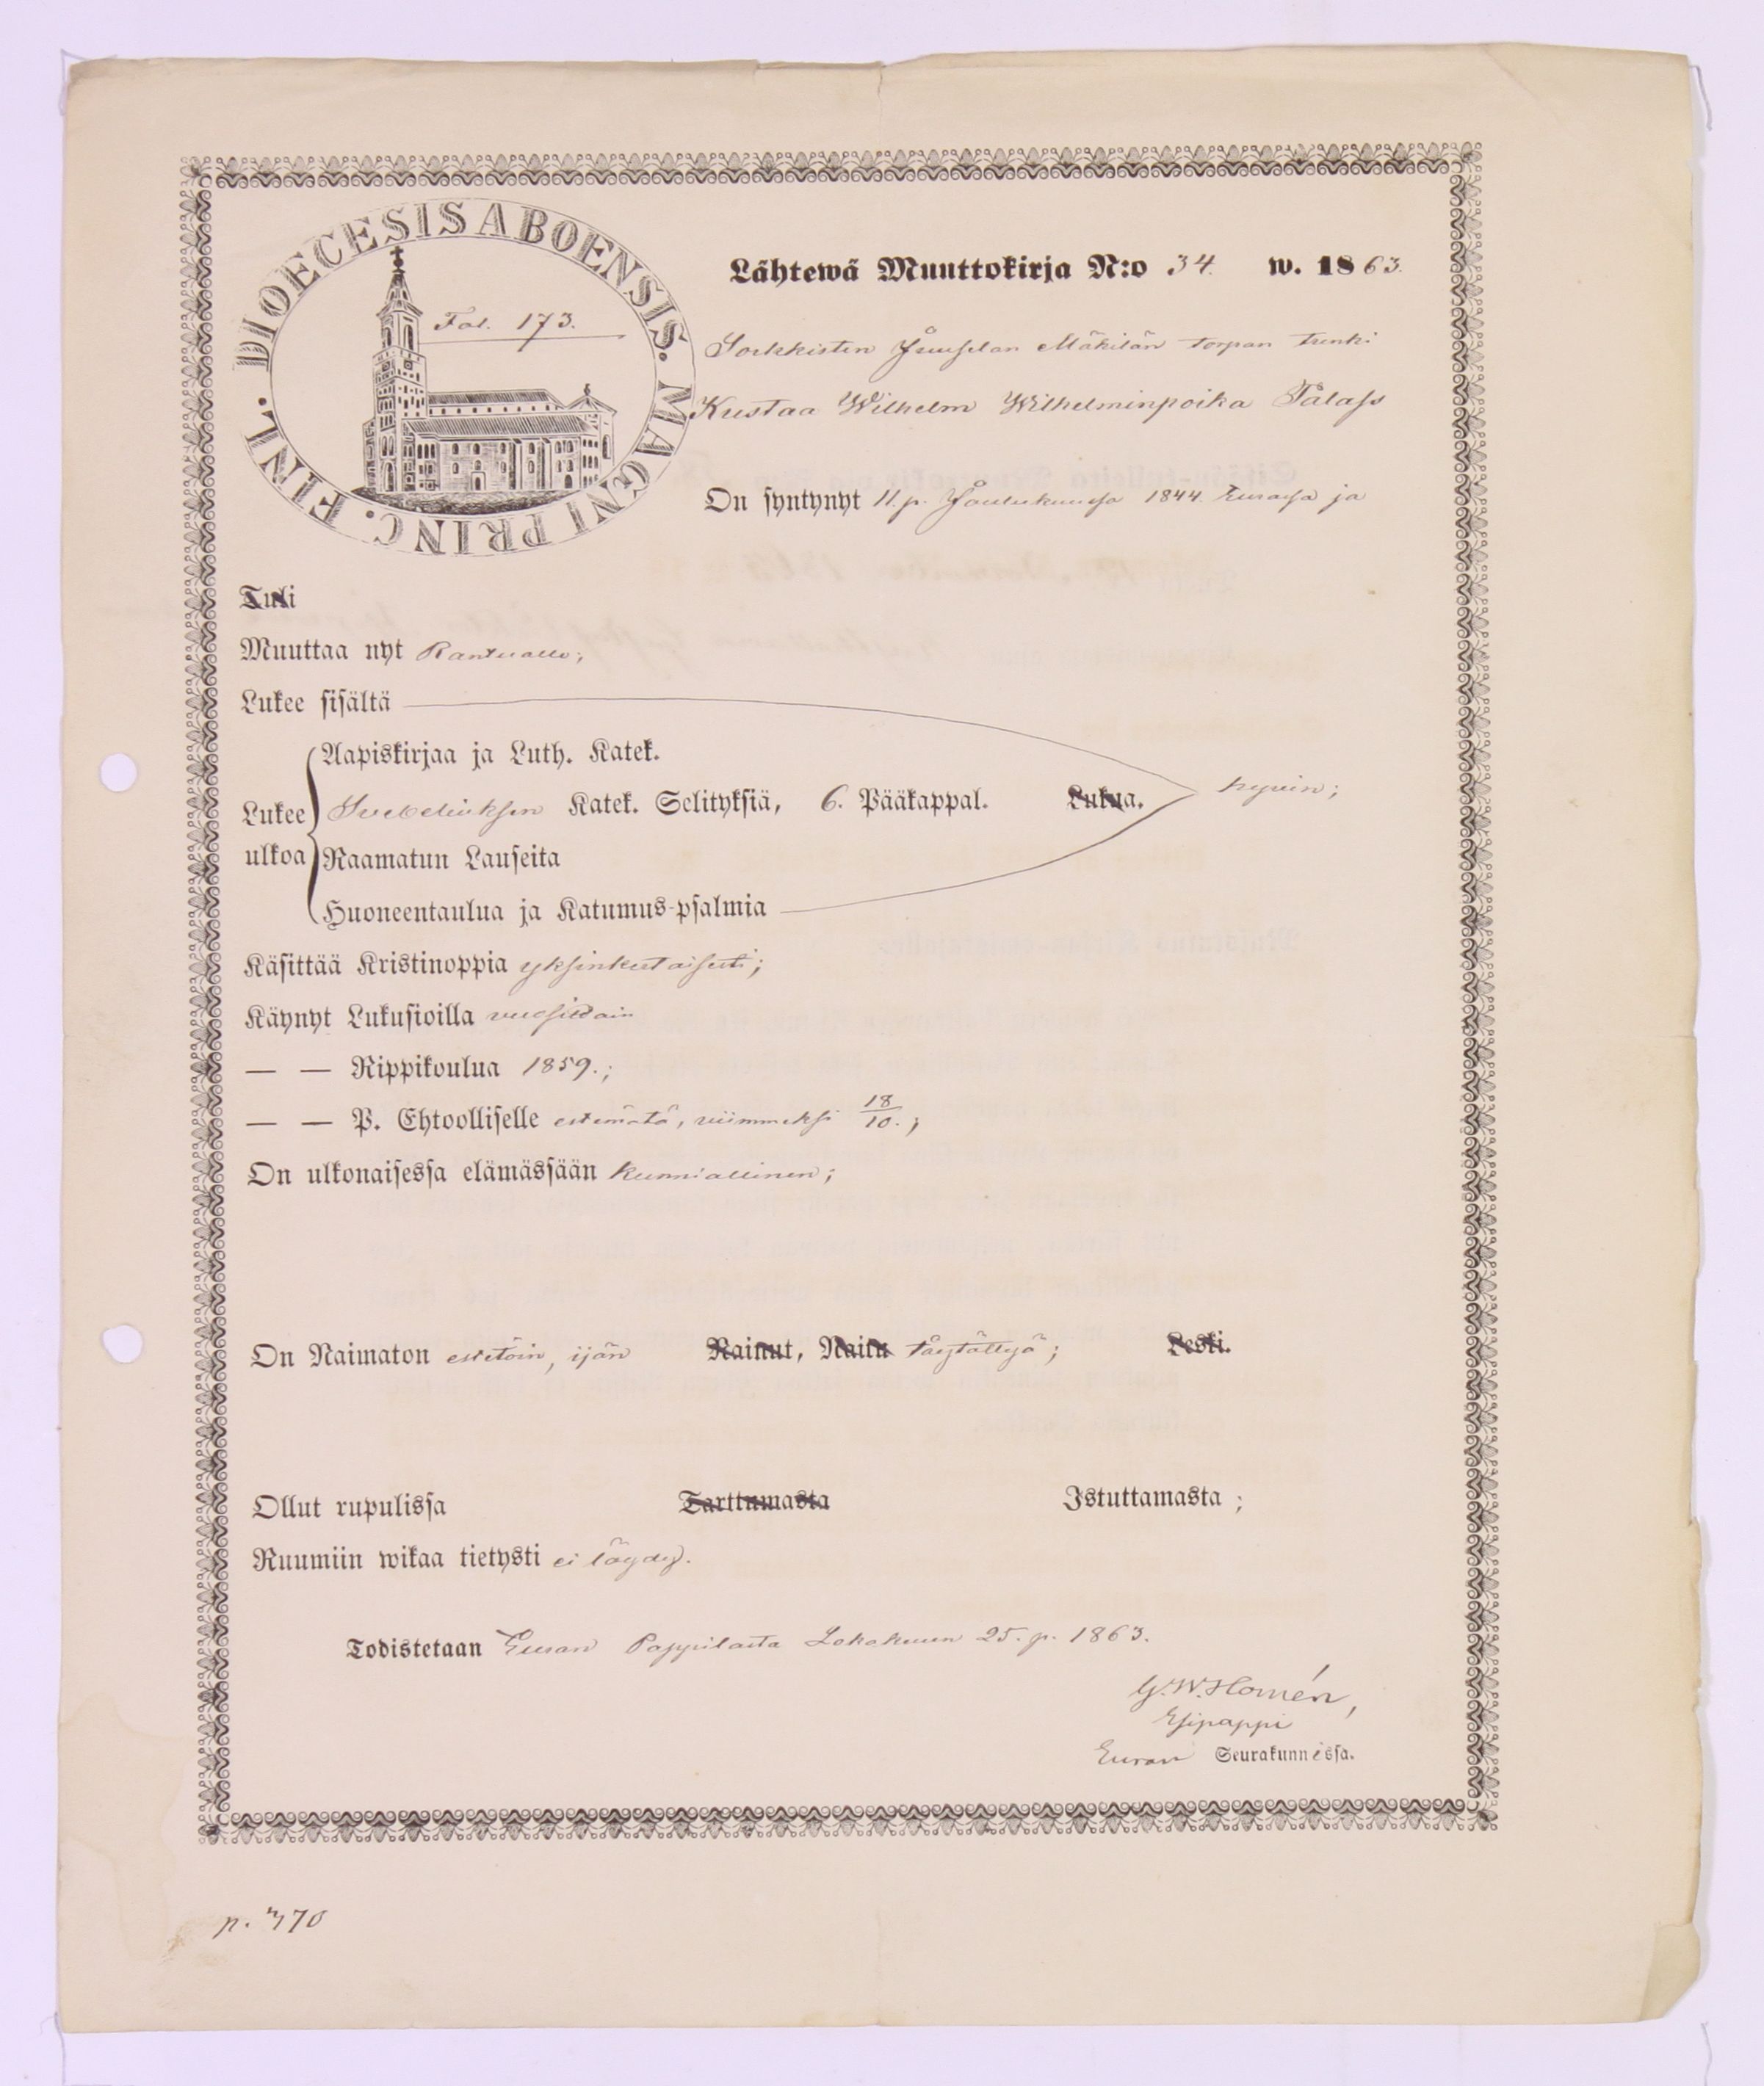 DIOECESIS ABOENSIS. MAGNI PRINC. FINL.
Fol. 173.
Lähtewä Muuttokirja N:o 34. w. 1863.
Sorkkisten Juuselan Mäkilän torpan trenki
Kustaa Wilhelm Wilhelminpoika Palass
On syntynyt 11. p. Joulukuussa 1844. Eurassa ja
Tuli
Muuttaa nyt Rantualle;
Lukee sisältä
Aapiskirjaa ja Luth. Katek.
Lukee Svebeliuksen Katek. Selityksiä, 6. Pääkappal. Lukua. hyvin;
ulkoa Raamatun Lauseita
Huoneentaulua ja Katumus-psalmia
Käsittää Kristinoppia yksinkertaisesti;
Käynyt Lukusioilla vuosittain
— — Rippikoulua 1859.;
— — P. Ehtoolliselle estemätä, viimmeksi 18/10.;
On ulkonaisessa elämässään kunniallinen;
On Naimaton estetöin, ijän Nainut, Naitu täytättyä; Leski.
Ollut rupulissa Tarttumasta Istuttamasta;
Ruumiin wikaa tietysti ei löydy.
Todistetaan Euran Pappilasta Lokakuun 25. p. 1863.
G. W. Homén,
Esipappi
Euran Seurakunnissa.
p. 770